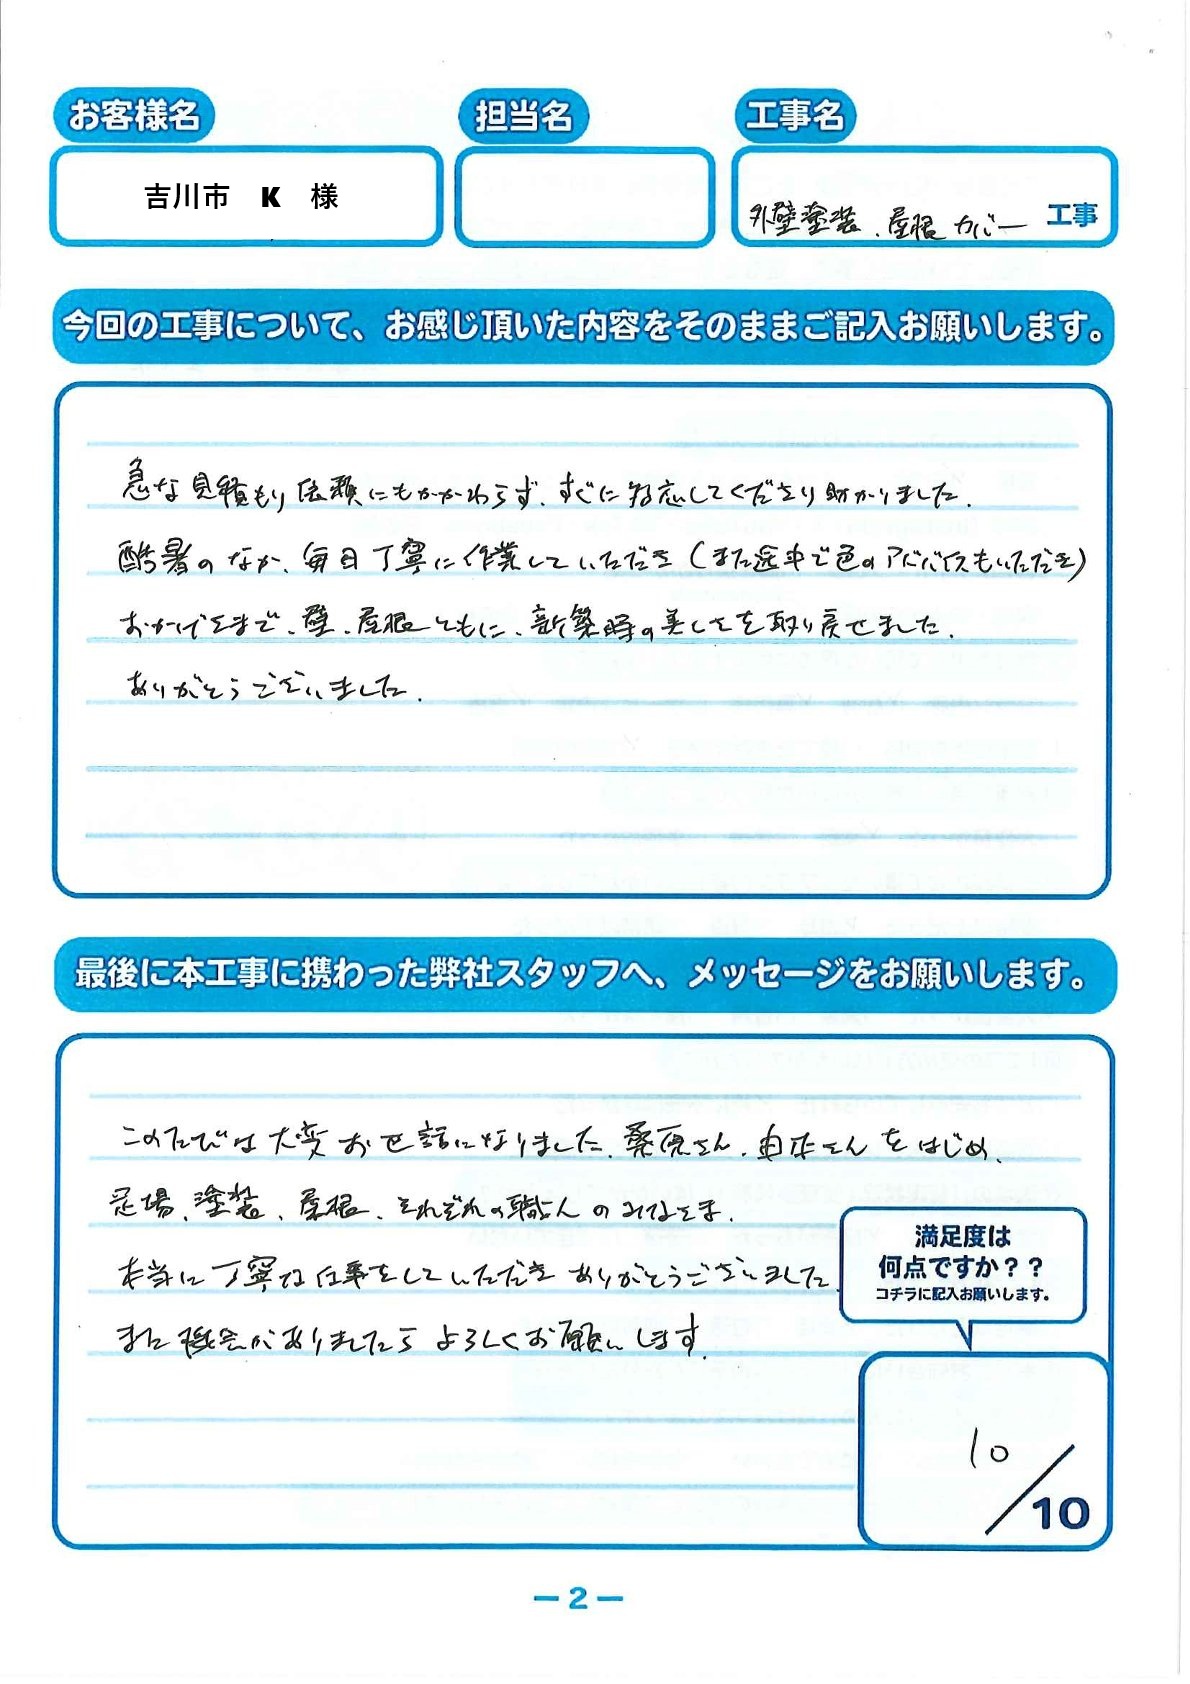 お客様名
担当名
工事名
吉川市 K 様
外壁塗装、屋根カバー 工事
今回の工事について、お感じ頂いた内容をそのままご記入お願いします。
急な見積もり依頼にもかかわらず、すぐに対応してくださり助かりました。
酷暑のなか、毎日丁寧に作業していただき(また途中で色のアドバイスもいただき)
おかげさまで、壁、屋根ともに、新築時の美しさを取り戻せました。
ありがとうございました。
最後に本工事に携わった弊社スタッフへ、メッセージをお願いします。
このたびは大変お世話になりました。桑原さん、さんをはじめ、
足場、塗装、屋根、それぞれの職人のみなさま、
本当に丁寧な仕事をしていただきありがとうございました。
また機会がありましたらよろしくお願いします。
満足度は
何点ですか??
コチラに記入お願いします。
10/10
-2-